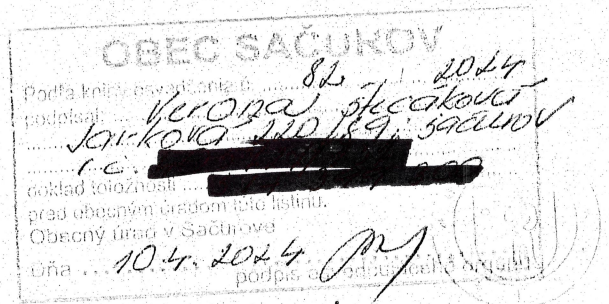 OBEC SAČUROV
Podľa knihy osvedčenia č. ........ 82 / 2024
podpísal: Verona
Jarková 220/89, Sačurov
r.č.
doklad totožnosti
pred obecným úradom túto listinu.
Obecný úrad v Sačurove
Dňa .... 10.4. 2024
podpis